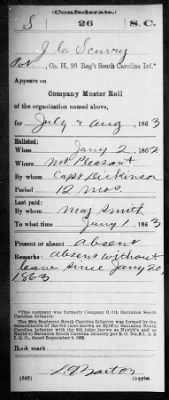 (Confederate.)
S 26 S.C.
J C Scurry
Pvt, Co. H, 26 Reg't South Carolina Inf.*
Appears on
Company Muster Roll
of the organization named above,
for July & Aug, 1863
Enlisted:
When Jany 2, 1862
Where Mt Pleasant
By whom Capt Dickinson
Period 12 mos
Last paid:
By whom Maj Smith
To what time Jany 1, 1863
Present or absent Absent
Remarks: Absent without
leave since Jany 20,
1863
Book mark:
(642) Copyist.